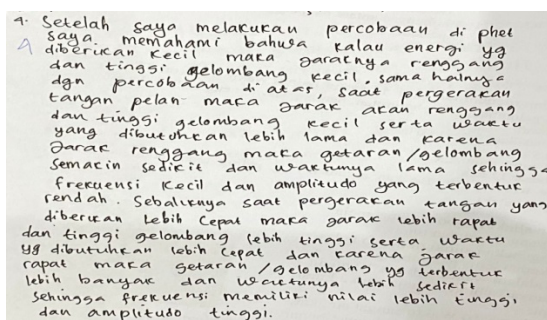 4. Setelah saya melakukan percobaan di phet
4 saya memahami bahwa kalau energi yg
diberikan kecil maka jaraknya renggang
dan tinggi gelombang kecil. sama halnya
dgn percobaan di atas, saat pergerakan
tangan pelan maka jarak akan renggang
dan tinggi gelombang kecil serta waktu
yang dibutuhkan lebih lama dan karena
jarak renggang maka getaran/gelombang
semakin sedikit dan waktunya lama sehingga
frekuensi kecil dan amplitudo yang terbentuk
rendah. Sebaliknya saat pergerakan tangan yang
diberikan lebih cepat maka jarak lebih rapat
dan tinggi gelombang lebih tinggi serta waktu
yg dibutuhkan lebih cepat dan karena jarak
rapat maka getaran/gelombang yg terbentuk
lebih banyak dan waktunya lebih sedikit
sehingga frekuensi memiliki nilai lebih tinggi
dan amplitudo tinggi.